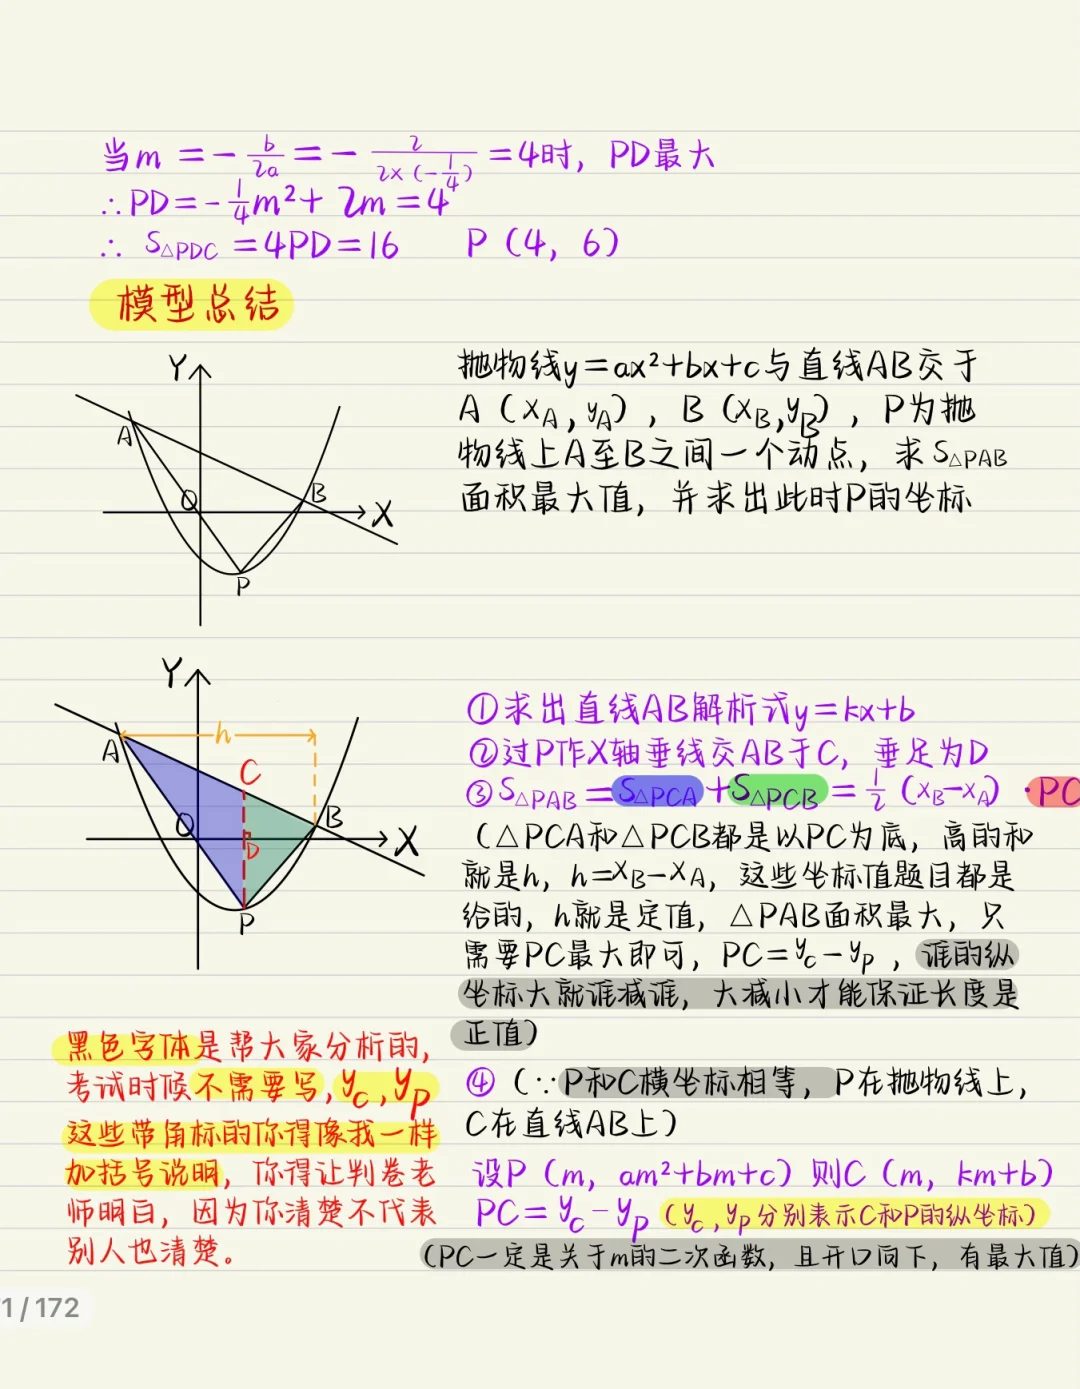 当m =-b/2a=-2/2×(-1/4)=4时，PD最大
∴PD=-1/4m²+2m=4
∴ S△PDC=4PD=16 P（4，6）
模型总结
Y
A
O
B
X
P
抛物线y=ax²+bx+c与直线AB交于
A（xA,yA），B（xB,yB），P为抛
物线上A至B之间一个动点，求S△PAB
面积最大值，并求出此时P的坐标
Y
h
A
C
O
D
B
X
P
①求出直线AB解析式y=kx+b
②过P作X轴垂线交AB于C，垂足为D
③S△PAB=S△PCA+S△PCB=1/2（xB-xA）·PC
（△PCA和△PCB都是以PC为底，高的和
就是h，h=xB-xA，这些坐标值题目都是
给的，h就是定值，△PAB面积最大，只
需要PC最大即可，PC=yc-yp，谁的纵
坐标大就谁减谁，大减小才能保证长度是
正值）
④（∵P和C横坐标相等，P在抛物线上，
C在直线AB上）
设P（m，am²+bm+c）则C（m，km+b）
PC=yc-yp（yc,yp分别表示C和P的纵坐标）
（PC一定是关于m的二次函数，且开口向下，有最大值）
黑色字体是帮大家分析的，
考试时候不需要写，yc,yp
这些带角标的你得像我一样
加括号说明，你得让判卷老
师明白，因为你清楚不代表
别人也清楚。
1/172